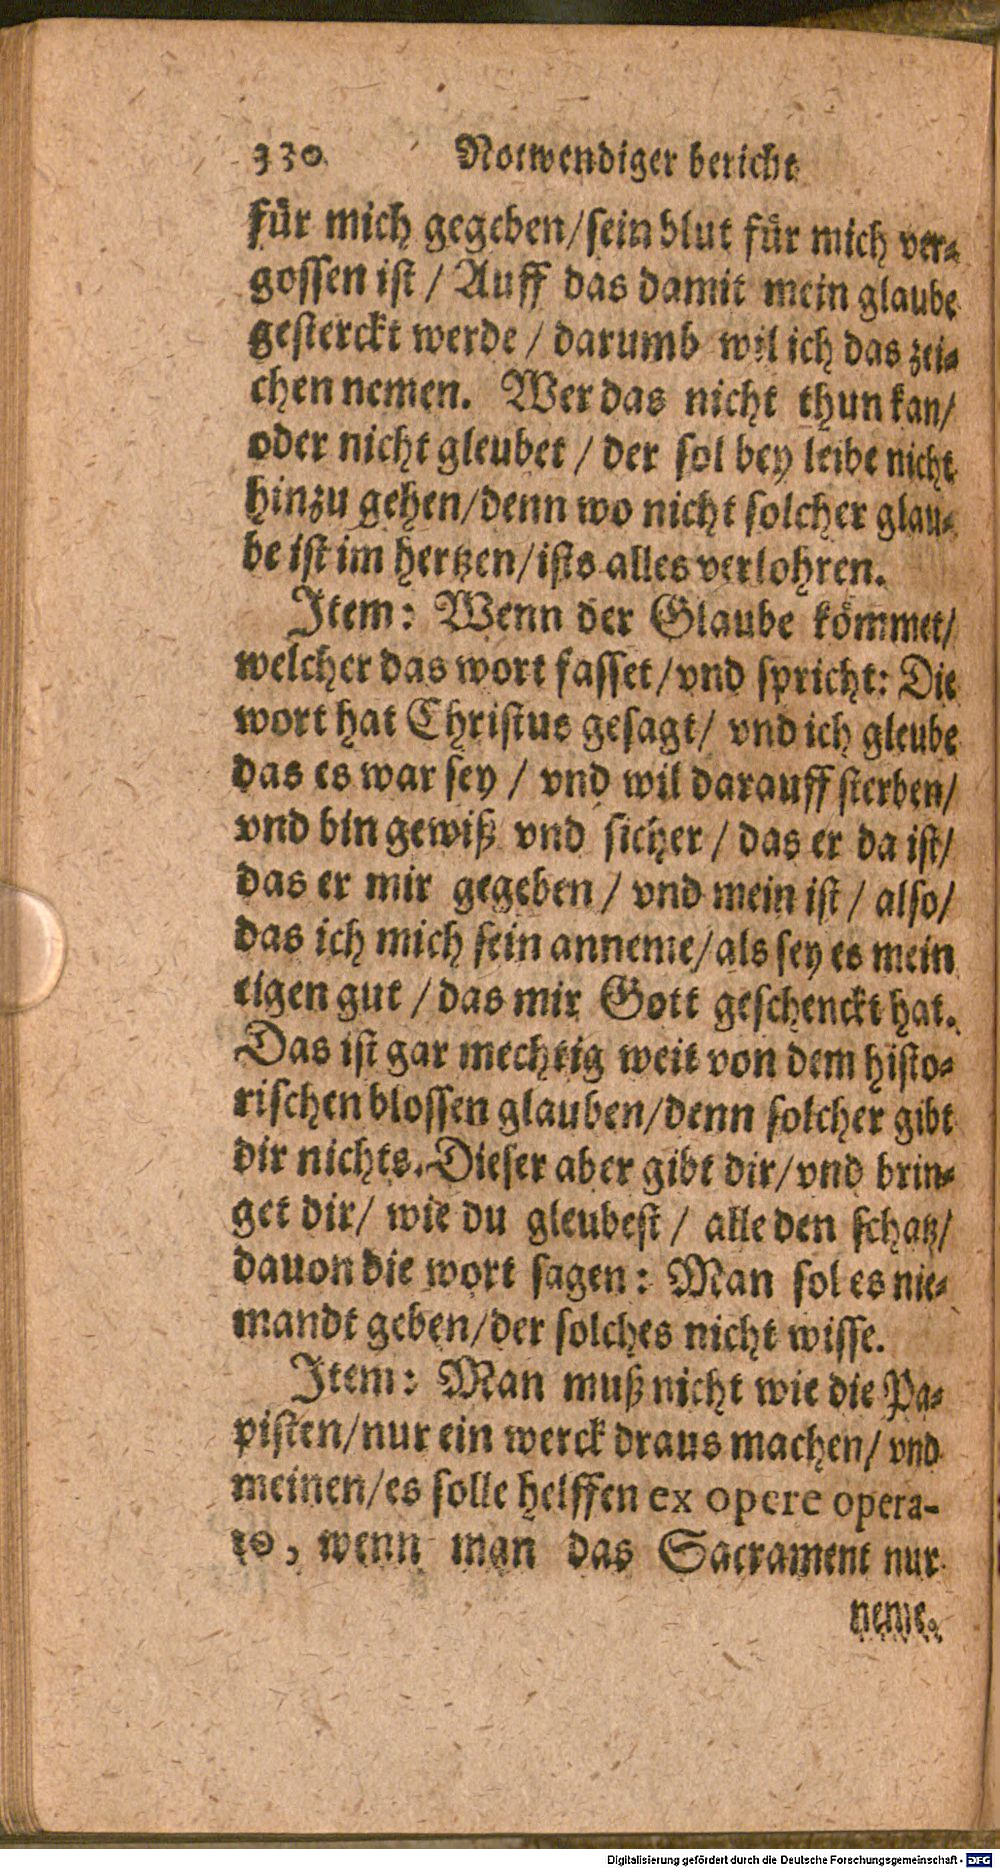 330 Notwendiger bericht
für mich gegeben/sein blut für mich ver-
gossen ist / Auff das damit mein glaube
gesterckt werde / darumb wil ich das zei-
chen nemen. Wer das nicht thun kan/
oder nicht gleubet / der sol bey leibe nicht
hinzu gehen/denn wo nicht solcher glau-
be ist im hertzen/ists alles verlohren.
Item: Wenn der Glaube kömmet/
welcher das wort fasset/vnd spricht: Die
wort hat Christus gesagt/ vnd ich gleube
das es war sey / vnd wil darauff sterben/
vnd bin gewiß vnd sicher / das er da ist/
das er mir gegeben / vnd mein ist / also/
das ich mich sein anneme/als sey es mein
eigen gut / das mir Gott geschenckt hat.
Das ist gar mechtig weit von dem histo-
rischen blossen glauben/denn solcher gibt
dir nichts. Dieser aber gibt dir/vnd brin-
get dir/ wie du gleubest / alle den schatz/
dauon die wort sagen: Man sol es nie-
mandt geben/der solches nicht wisse.
Item: Man muß nicht wie die Pa-
pisten/nur ein werck draus machen/ vnd
meinen/es solle helffen ex opere opera-
to, wenn man das Sacrament nur
neme.
Digitalisierung gefördert durch die Deutsche Forschungsgemeinschaft - DFG